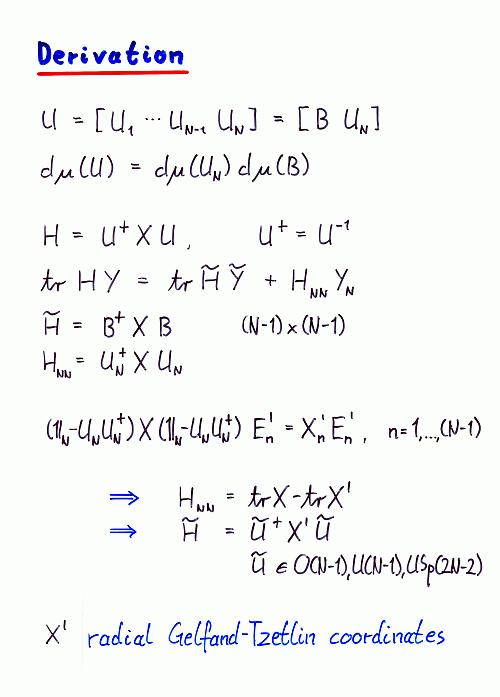 Derivation
U = [U₁ ⋯ U_{N-1} U_N] = [B U_N]
dμ(U) = dμ(U_N) dμ(B)
H = U⁺ X U , U⁺ = U⁻¹
tr H Y = tr H̃ Ỹ + H_{NN} Y_N
H̃ = B⁺ X B (N-1)×(N-1)
H_{NN} = U_N⁺ X U_N
(𝟙_N-U_N U_N⁺) X (𝟙_N-U_N U_N⁺) E'_n = X'_n E'_n , n=1,...,(N-1)
⇒ H_{NN} = tr X - tr X'
⇒ H̃ = Ũ⁺ X' Ũ
Ũ ∈ O(N-1), U(N-1), USp(2N-2)
X' radial Gelfand-Tzetlin coordinates